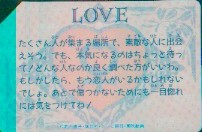 LOVE
たくさん人が集まる場所で、素敵な人に出会
えそう。でも、本気になるのはちょっと待っ
て？どんな人なのか良く調べた方がいいわ。
もしかしたら、もう恋人がいるかもしれない
でしょ。あとで傷つかないためにも一目惚れ
には気をつけてね！